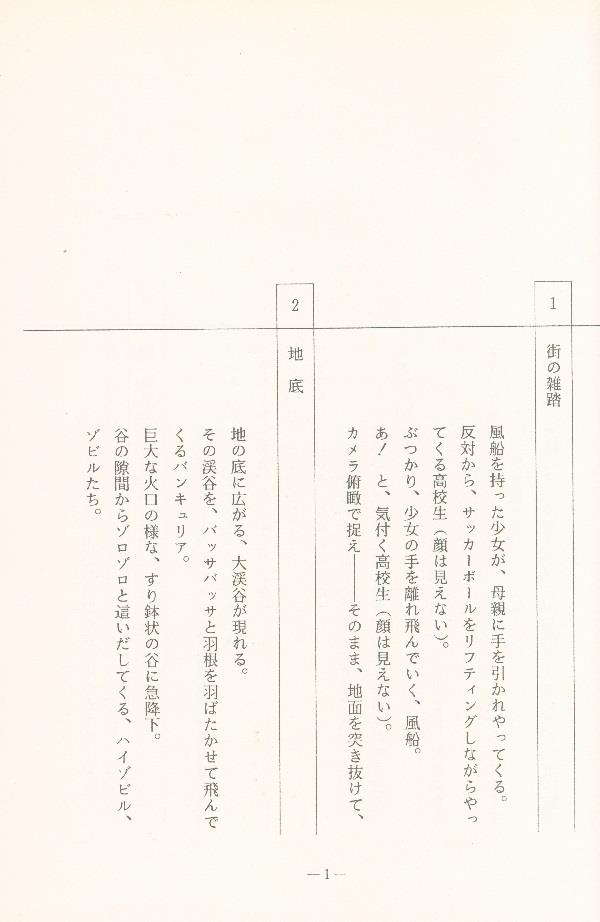 1
街の雑踏
風船を持った少女が、母親に手を引かれやってくる。
反対から、サッカーボールをリフティングしながらやっ
てくる高校生（顔は見えない）。
ぶつかり、少女の手を離れ飛んでいく、風船。
あ！　と、気付く高校生（顔は見えない）。
カメラ俯瞰で捉え――そのまま、地面を突き抜けて、
2
地底
地の底に広がる、大渓谷が現れる。
その渓谷を、バッサバッサと羽根を羽ばたかせて飛んで
くるバンキュリア。
巨大な火口の様な、すり鉢状の谷に急降下。
谷の隙間からゾロゾロと這いだしてくる、ハイゾビル、
ゾビルたち。
—1—